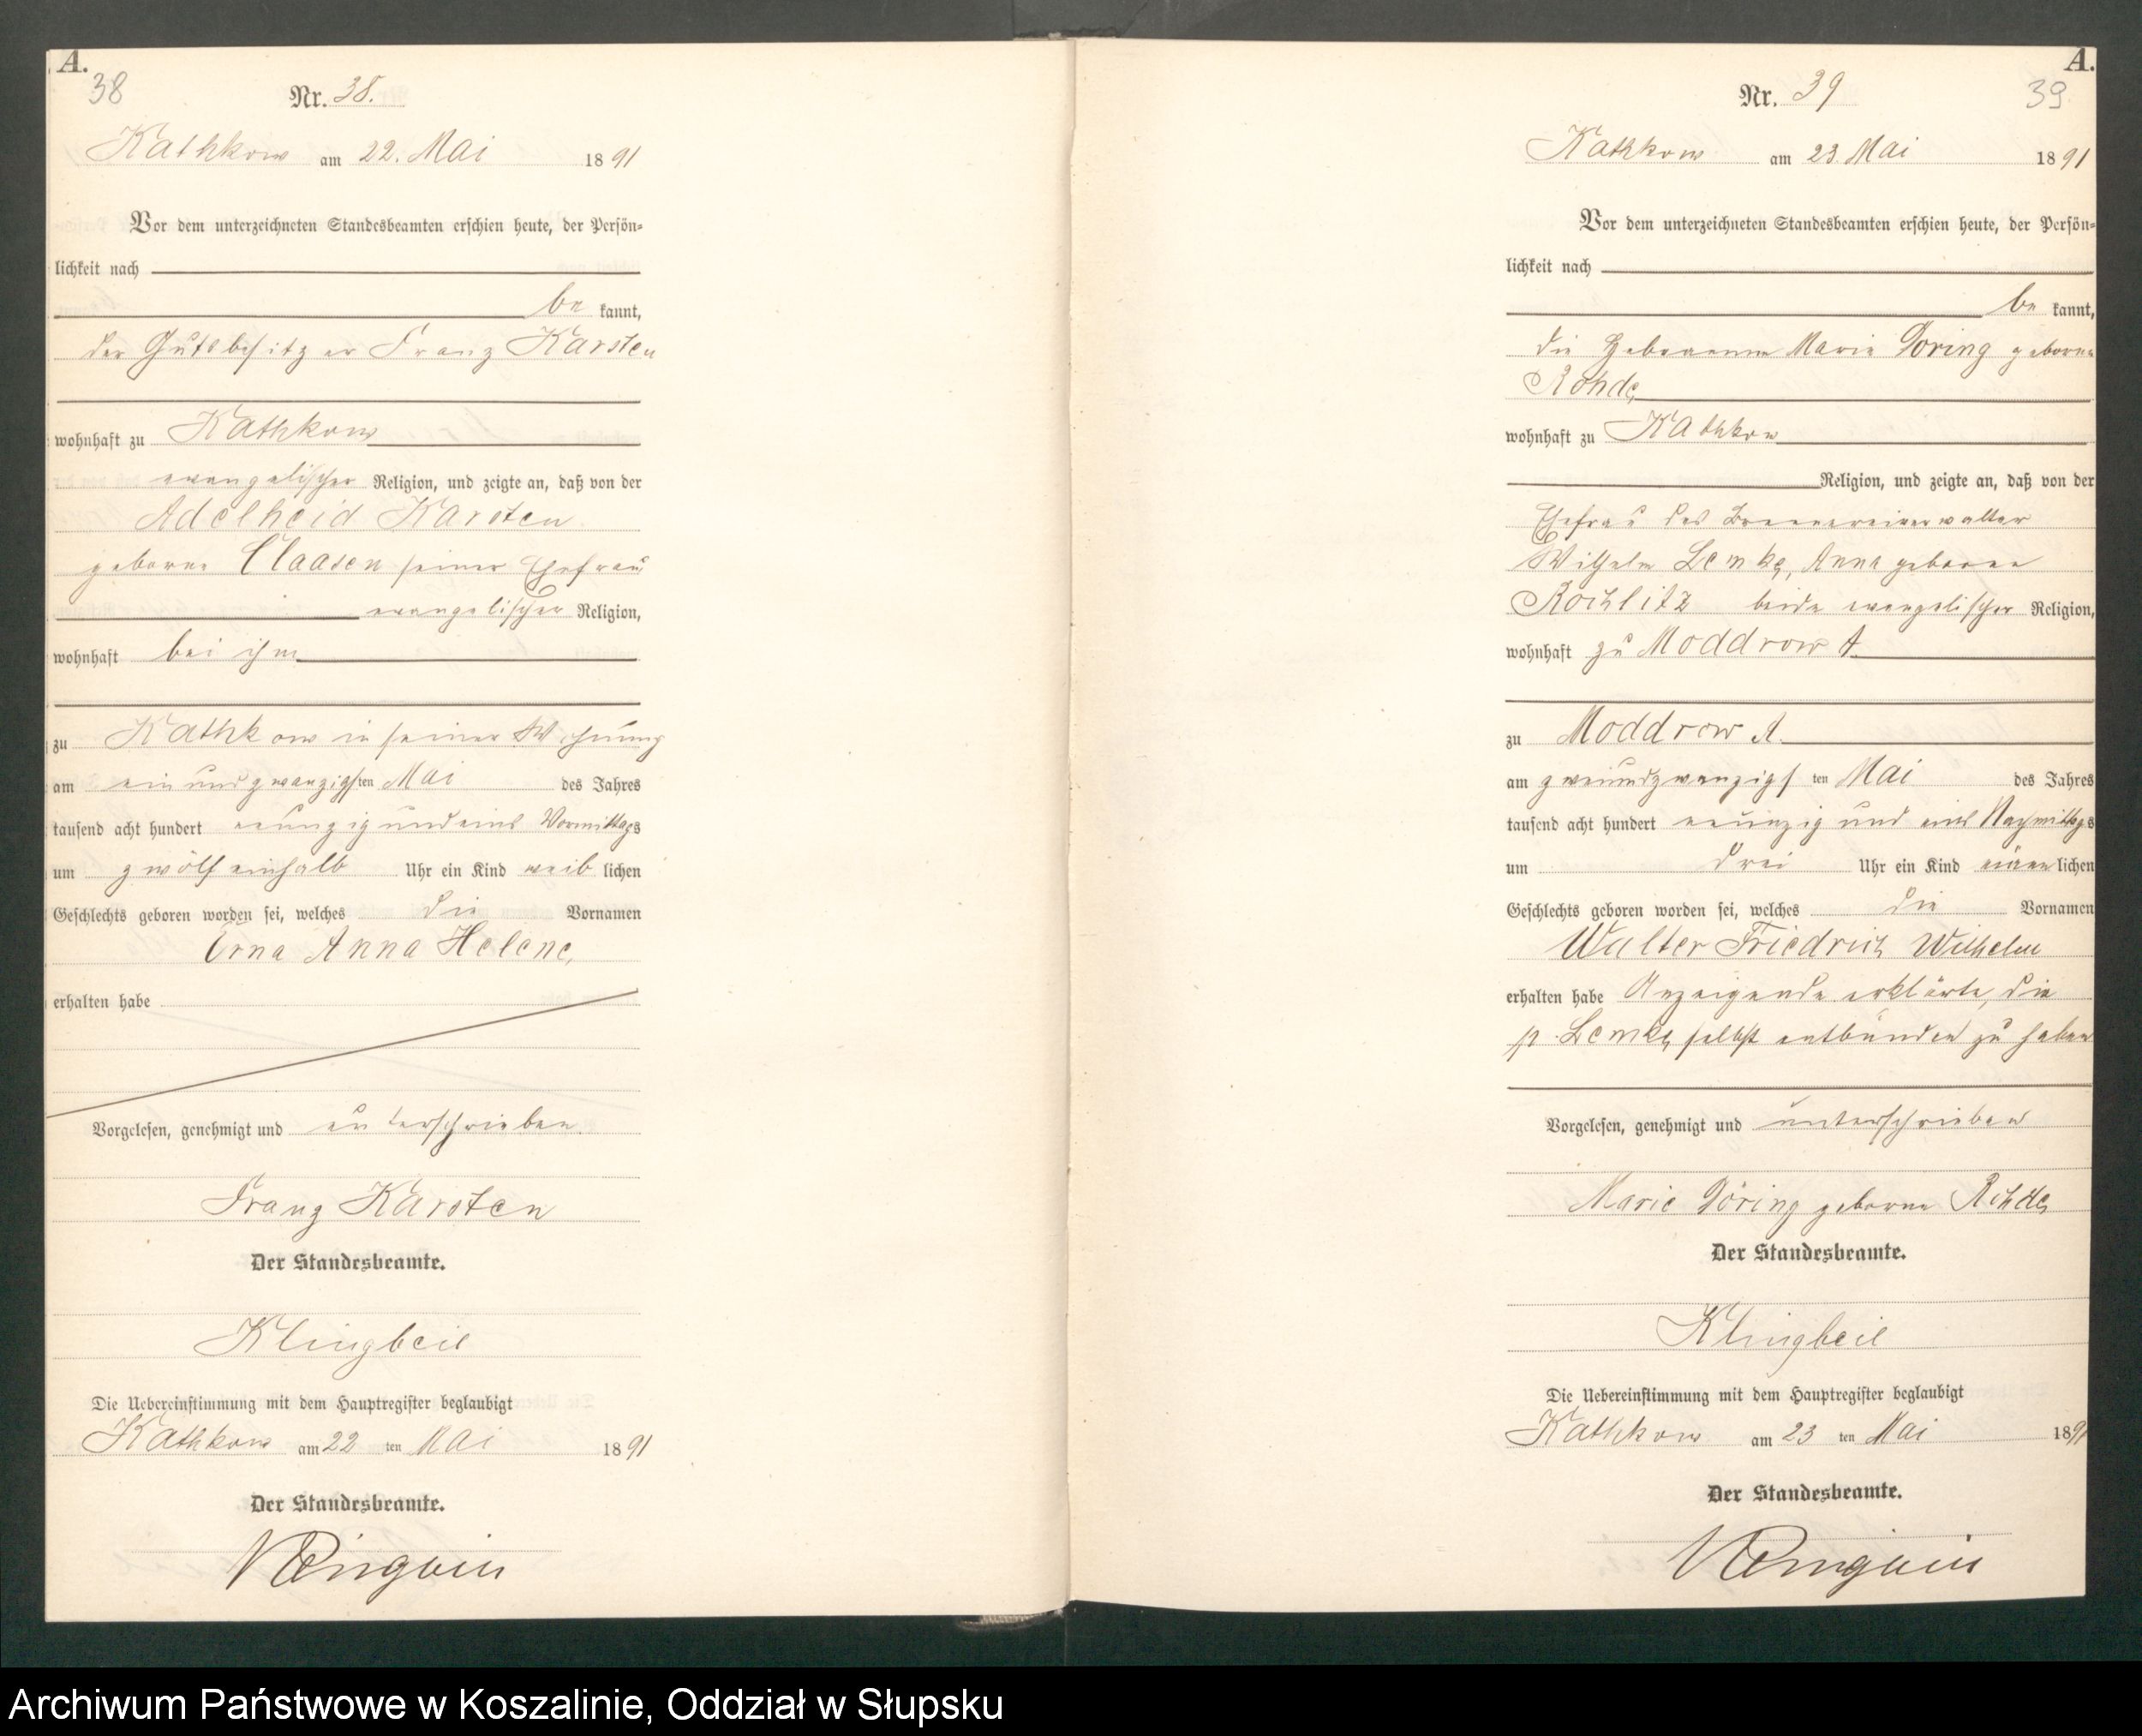 A.
38
Nr. 38.
Kathkow am 22. Mai 1891
Vor dem unterzeichneten Standesbeamten erschien heute, der Persön-
lichkeit nach
be kannt,
der Gutsbesitzer Franz Karsten
wohnhaft zu Kathkow
evangelischer Religion, und zeigte an, daß von der
Adelheid Karsten
geborne Claasen seiner Ehefrau
evangelischer Religion,
wohnhaft bei ihm
zu Kathkow in seiner Wohnung
am ein und zwanzigsten Mai des Jahres
tausend acht hundert neunzig und eins Vormittags
um zwölf einhalb Uhr ein Kind weib lichen
Geschlechts geboren worden sei, welches die Vornamen
Erna Anna Helene,
erhalten habe
Vorgelesen, genehmigt und unterschrieben.
Franz Karsten
Der Standesbeamte.
Klingbeil
Die Uebereinstimmung mit dem Hauptregister beglaubigt
Kathkow am 22 ten Mai 1891
Der Standesbeamte.
A.
39
Nr. 39
Kathkow am 23. Mai 1891
Vor dem unterzeichneten Standesbeamten erschien heute, der Persön-
lichkeit nach
be kannt,
die Hebamme Marie Döring geborne
Rohde
wohnhaft zu Kathkow
Religion, und zeigte an, daß von der
Ehefrau des Brennereiverwalter
Wilhelm Lemke, Anna geborne
Rochlitz beide evangelischer Religion,
wohnhaft zu Moddrow A.
zu Moddrow A.
am zweiundzwanzigs ten Mai des Jahres
tausend acht hundert neunzig und eins Nachmittags
um drei Uhr ein Kind männ lichen
Geschlechts geboren worden sei, welches die Vornamen
Walter Friedrich Wilhelm
erhalten habe Anzeigende erklärte, die
p. Lemke selbst entbunden zu haben
Vorgelesen, genehmigt und unterschrieben
Marie Döring geborne Rohde
Der Standesbeamte.
Klingbeil
Die Uebereinstimmung mit dem Hauptregister beglaubigt
Kathkow am 23 ten Mai 1891
Der Standesbeamte.
Archiwum Państwowe w Koszalinie, Oddział w Słupsku